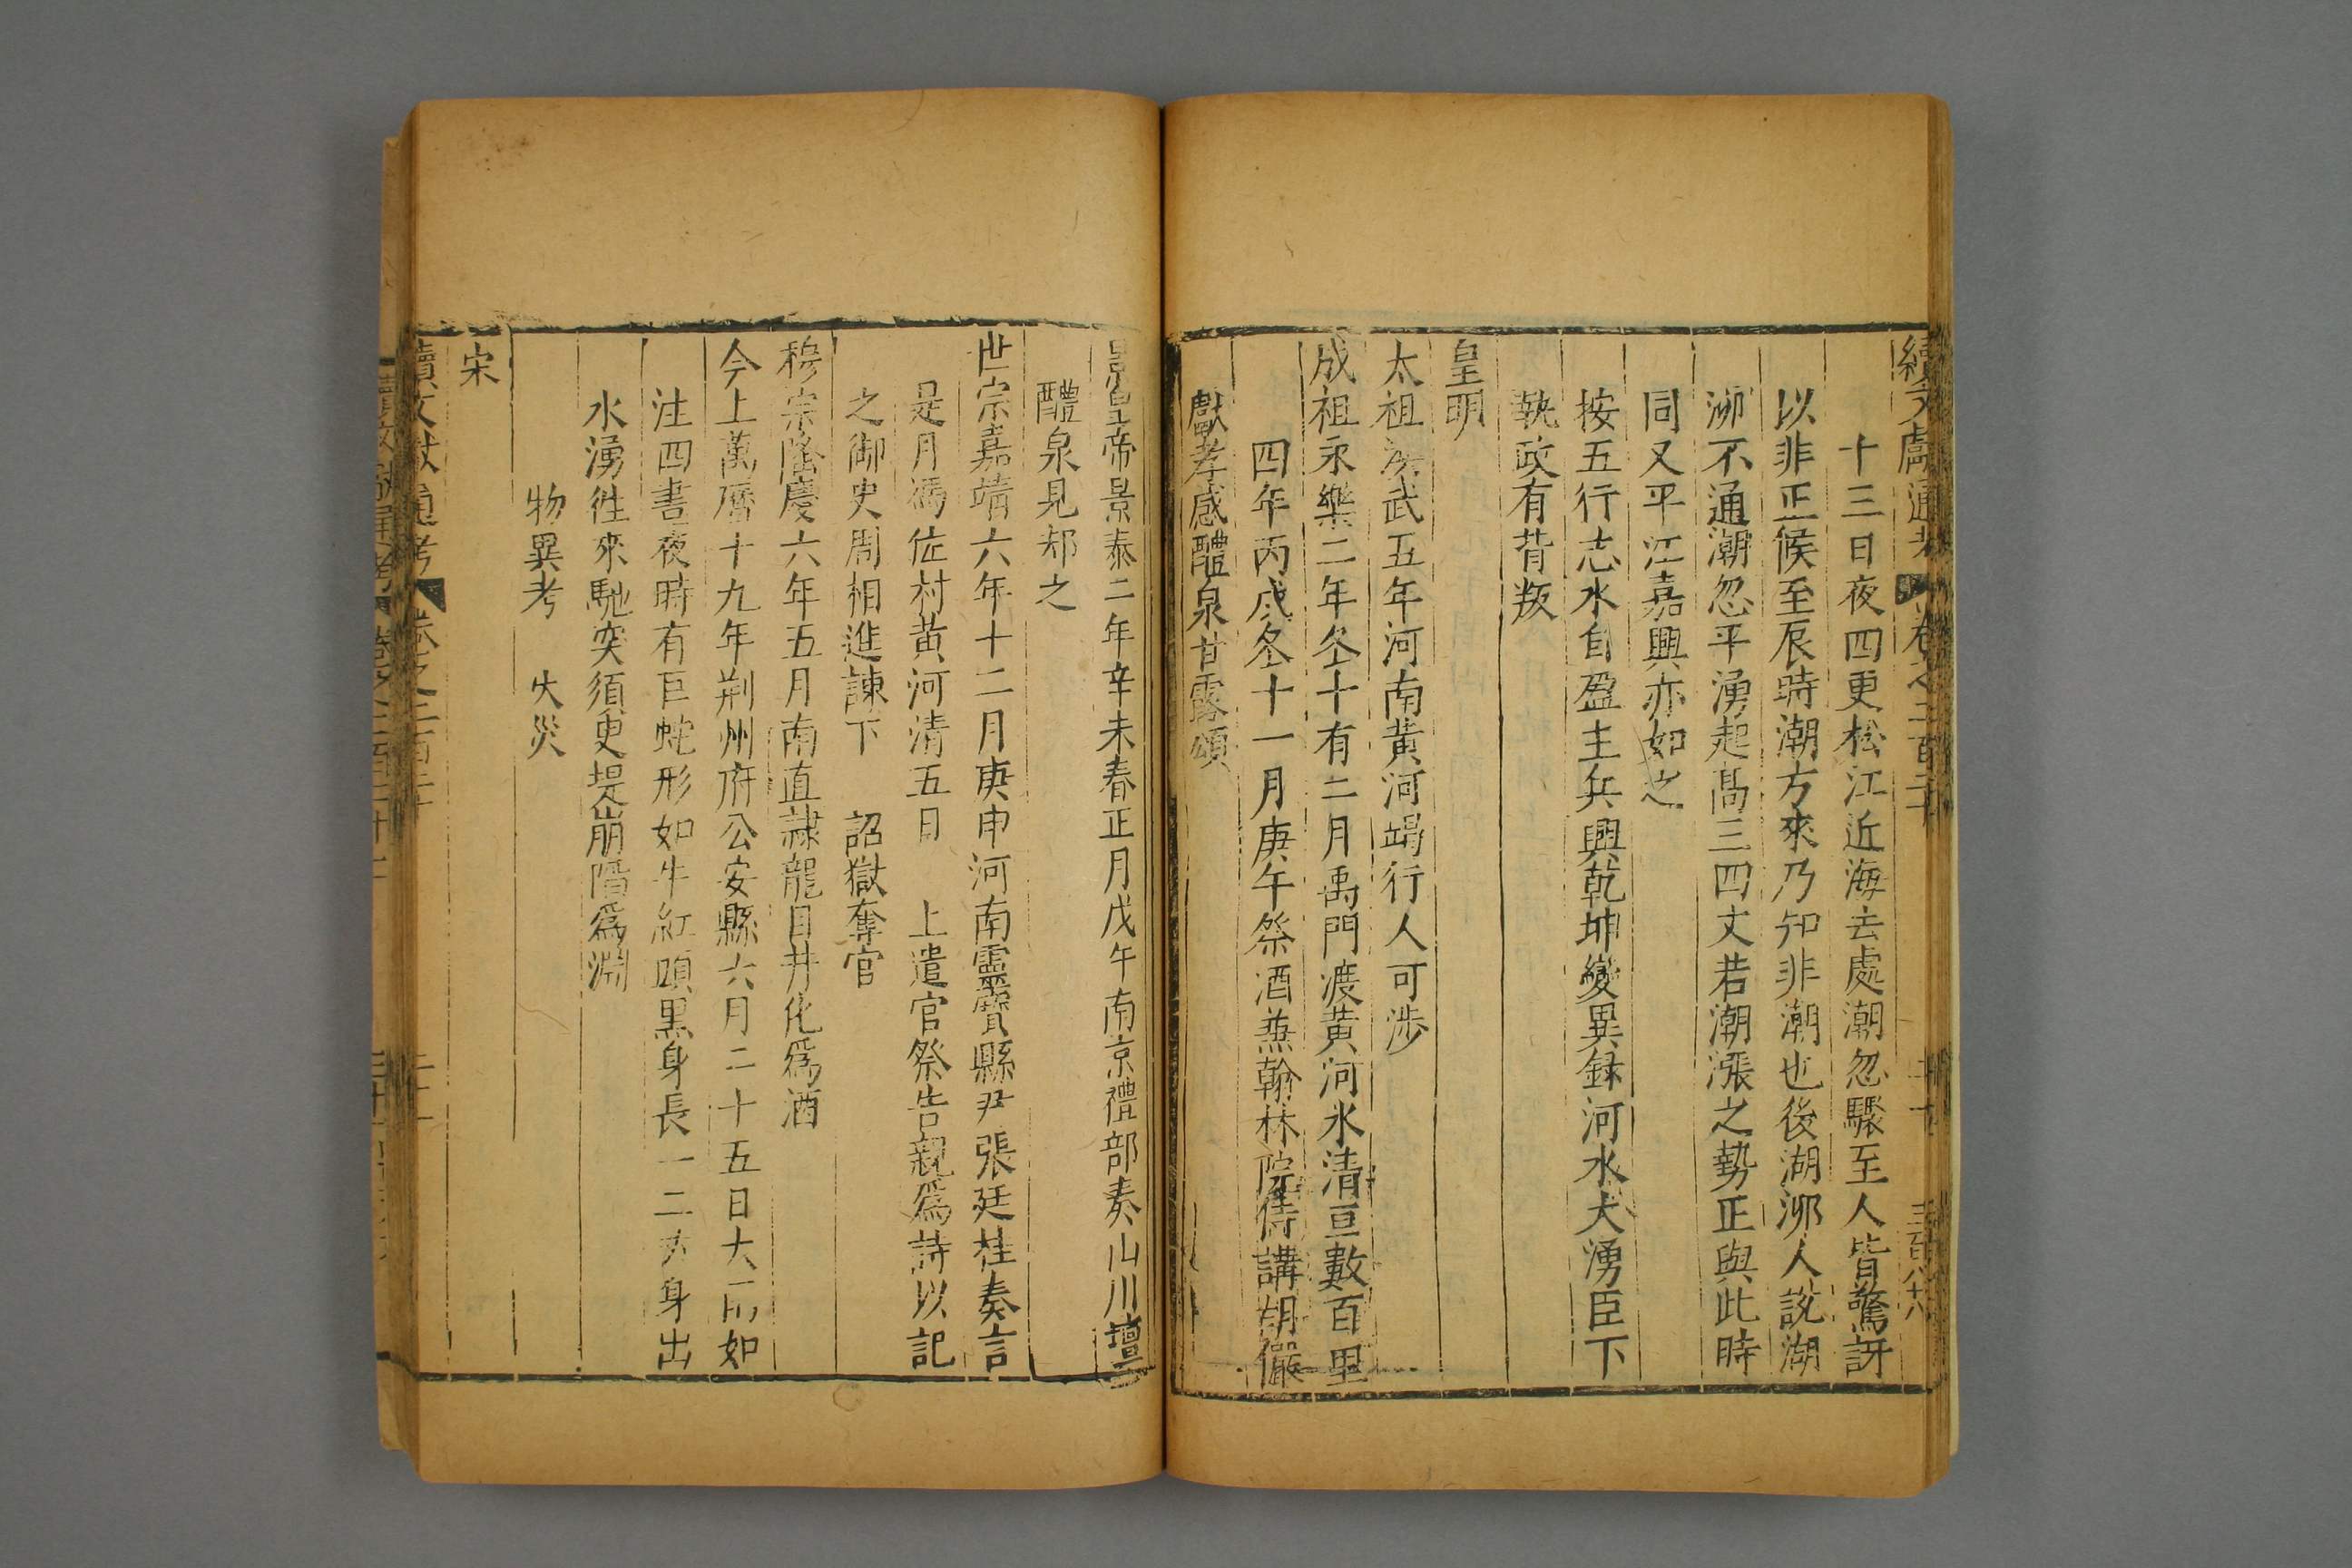 續文獻通考 卷之二百二十
十三日夜四更松江近海去處潮忽驟至人皆驚訝
以非正候至辰時潮方來乃知非潮也後湖泖人說湖
泖不通潮忽平湧起髙三四丈若潮漲之勢正與此時
同又平江嘉興亦如之
按五行志水自盈主兵興乾坤變異録河水大湧臣下
執政有背叛
皇明
太祖洪武五年河南黄河竭行人可涉
成祖永樂二年冬十有二月禹門渡黄河氷清亘數百里
四年丙戌冬十一月庚午祭酒兼翰林院侍講胡儼
獻孝感醴泉甘露頌
景皇帝景泰二年辛未春正月戊午南京禮部奏山川壇
醴泉見却之
世宗嘉靖六年十二月庚申河南靈寶縣尹張廷桂奏言
是月馮佐村黄河清五日 上遣官祭告親爲詩以記
之御史周相進諫下 詔獄奪官
穆宗隆慶六年五月南直隷龍目井化爲酒
今上萬曆十九年荆州府公安縣六月二十五日大雨如
注四晝夜時有巨蛇形如牛紅頭黒身長一二丈身出
水湧徃來馳突須臾堤崩陷爲淵
物異考 火災
宋
續文獻通考